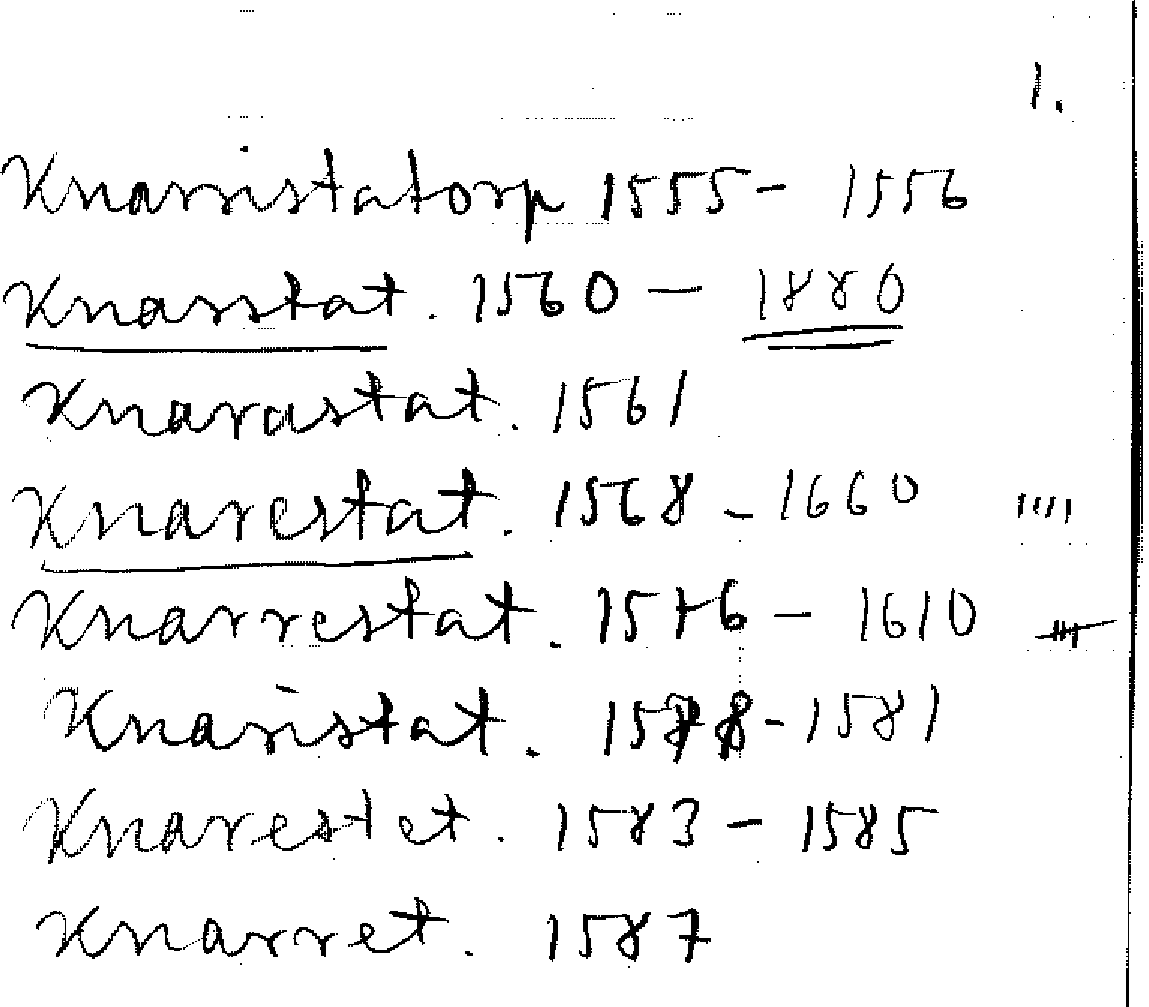 1.
Knarristatorp 1555 - 1556
Knarstat. 1560 - 1880
Knarastat. 1561
Knarestat. 1568 - 1660 ""
Knarrestat. 1576 - 1610
Knaristat. 1578 - 1581
Knarestet. 1583 - 1585
Knarret. 1587